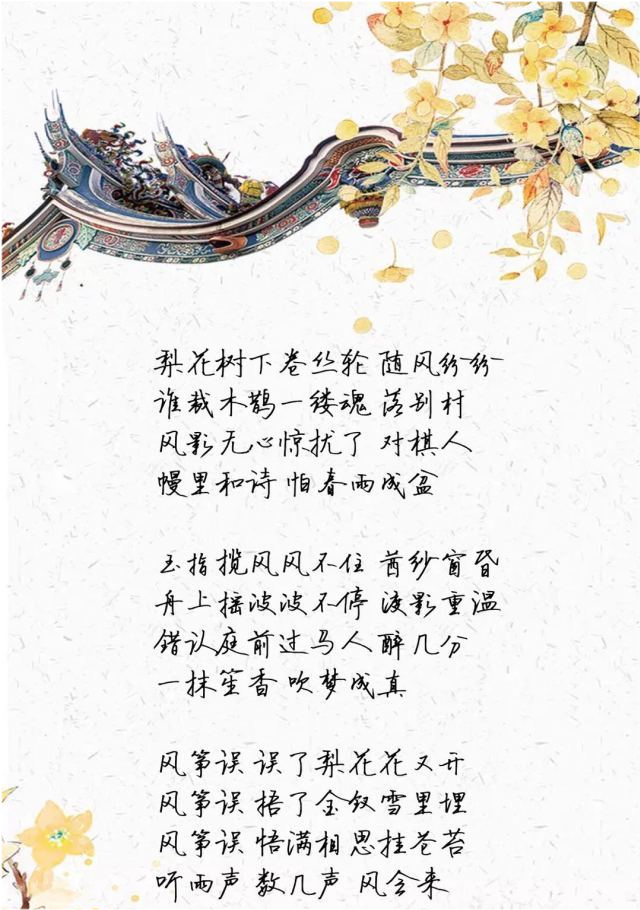 梨花树下卷丝轮 随风纷纷
谁裁木鹊一缕魂 落别村
风影无心惊扰了 对棋人
幔里和诗 怕春雨成盆
玉指揽风风不住 茜纱窗昏
舟上摇波波不停 渡影重温
错认庭前过马人 醉几分
一抹笙香 吹梦成真
风筝误 误了梨花花又开
风筝误 捂了金钗雪里埋
风筝误 悟满相思挂苍苔
听雨声 数几声 风会来